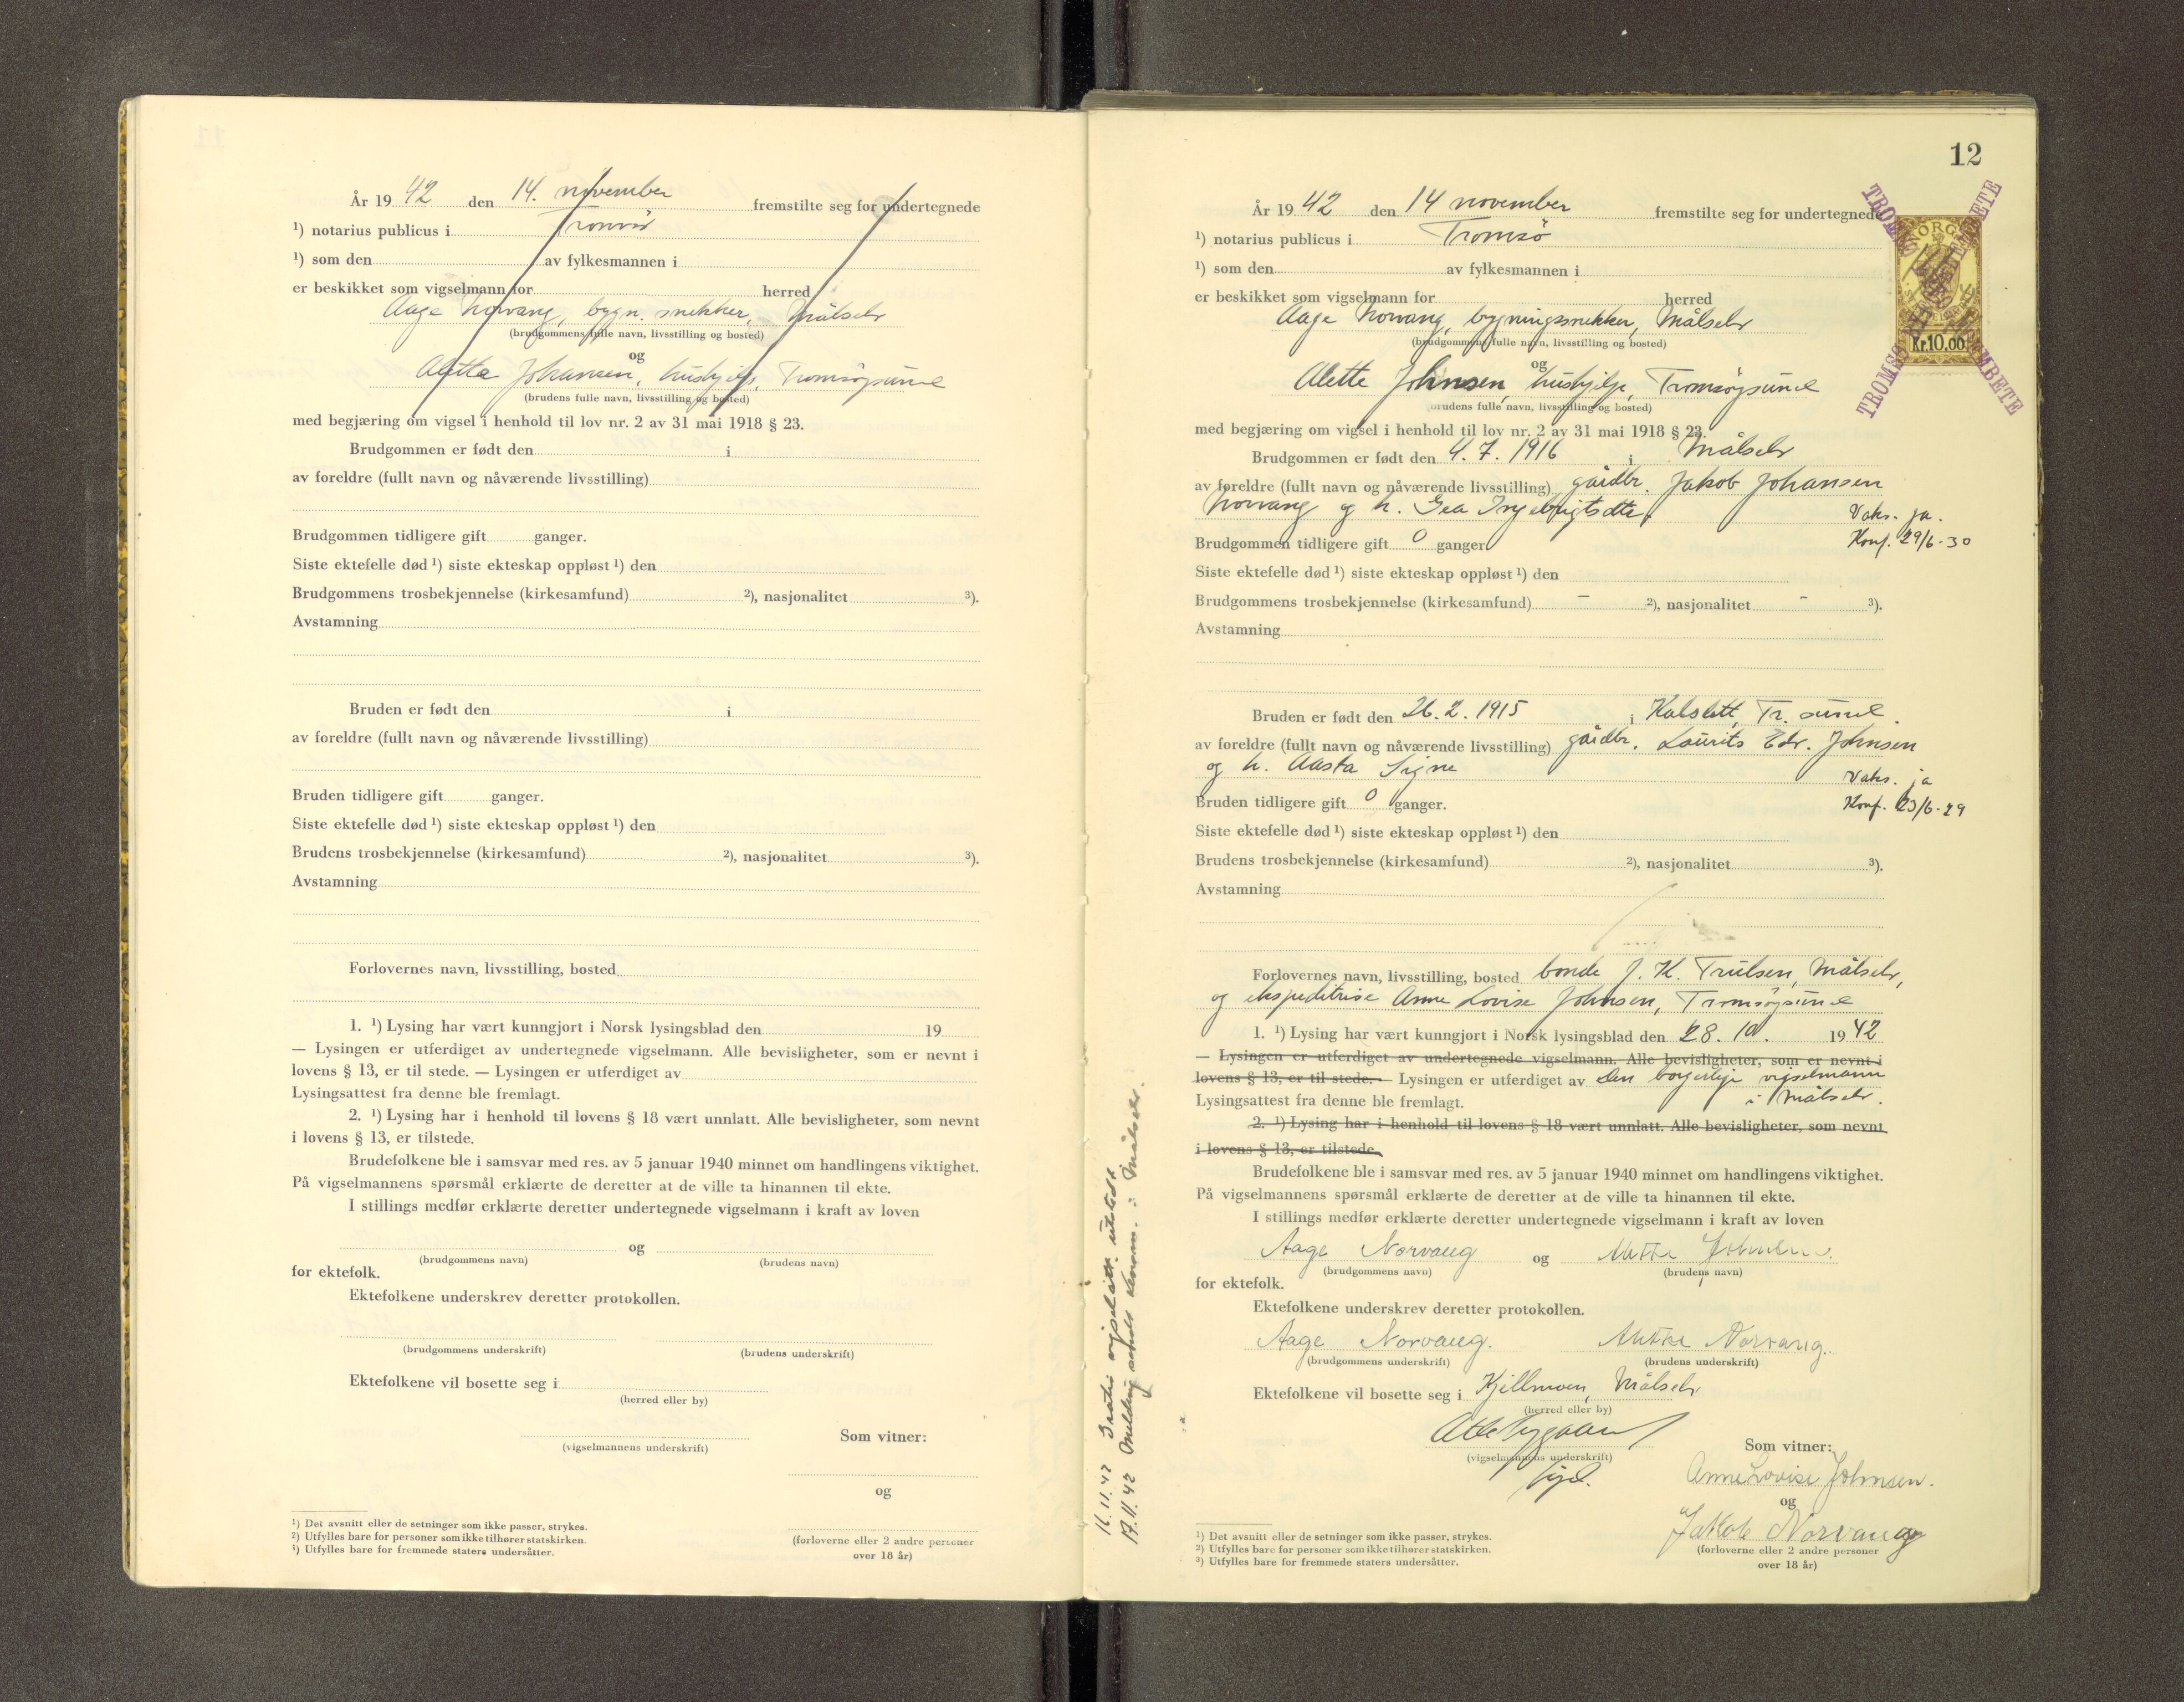 År 19 42 den 14. november fremstilte seg for undertegnede
¹) notarius publicus i Tromsö
¹) som den av fylkesmannen i
er beskikket som vigselmann for herred
Aage Norvang, bygn. snekker, Målselv
(brudgommens fulle navn, livsstilling og bosted)
og
Alette Johansen, hushjelp, Tromsöysund
(brudens fulle navn, livsstilling og bosted)
med begjæring om vigsel i henhold til lov nr. 2 av 31 mai 1918 § 23.
Brudgommen er født den i
av foreldre (fullt navn og nåværende livsstilling)
Brudgommen tidligere gift ganger.
Siste ektefelle død ¹) siste ekteskap oppløst ¹) den
Brudgommens trosbekjennelse (kirkesamfund) ²), nasjonalitet ³).
Avstamning
Bruden er født den i
av foreldre (fullt navn og nåværende livsstilling)
Bruden tidligere gift ganger.
Siste ektefelle død ¹) siste ekteskap oppløst ¹) den
Brudens trosbekjennelse (kirkesamfund) ²), nasjonalitet ³).
Avstamning
Forlovernes navn, livsstilling, bosted
1. ¹) Lysing har vært kunngjort i Norsk lysingsblad den 19
— Lysingen er utferdiget av undertegnede vigselmann. Alle bevisligheter, som er nevnt i
lovens § 13, er til stede. — Lysingen er utferdiget av
Lysingsattest fra denne ble fremlagt.
2. ¹) Lysing har i henhold til lovens § 18 vært unnlatt. Alle bevisligheter, som nevnt
i lovens § 13, er tilstede.
Brudefolkene ble i samsvar med res. av 5 januar 1940 minnet om handlingens viktighet.
På vigselmannens spørsmål erklærte de deretter at de ville ta hinannen til ekte.
I stillings medfør erklærte deretter undertegnede vigselmann i kraft av loven
og
(brudgommens navn) (brudens navn)
for ektefolk.
Ektefolkene underskrev deretter protokollen.
(brudgommens underskrift) (brudens underskrift)
Ektefolkene vil bosette seg i
(herred eller by)
Som vitner:
(vigselmannens underskrift)
og
(forloverne eller 2 andre personer
over 18 år)
¹) Det avsnitt eller de setninger som ikke passer, strykes.
²) Utfylles bare for personer som ikke tilhører statskirken.
³) Utfylles bare for fremmede staters undersåtter.
12
År 19 42 den 14 november fremstilte seg for undertegnede
¹) notarius publicus i Tromsö
¹) som den av fylkesmannen i
er beskikket som vigselmann for herred
Aage Norvang, bygningssnekker, Målselv
(brudgommens fulle navn, livsstilling og bosted)
og
Alette Johnsen, hushjelp, Tromsöysund
(brudens fulle navn, livsstilling og bosted)
NORGE
Kr. 10,00
TROMSØ EMBETE
med begjæring om vigsel i henhold til lov nr. 2 av 31 mai 1918 § 23.
Brudgommen er født den 4. 7. 1916 i Målselv
av foreldre (fullt navn og nåværende livsstilling) gårdbr. Jakob Johansen
Norvang og h. Gea Ingebrigtsdtr. Vaks. ja.
Brudgommen tidligere gift 0 ganger. Konf. 29/6-30
Siste ektefelle død ¹) siste ekteskap oppløst ¹) den
Brudgommens trosbekjennelse (kirkesamfund) - ²), nasjonalitet - ³).
Avstamning
Bruden er født den 26. 2. 1915 i Kalslett, Tr. sund.
av foreldre (fullt navn og nåværende livsstilling) gårdbr. Laurits Edv. Johnsen
og h. Aasta Signe Vaks. ja
Bruden tidligere gift 0 ganger. Konf. 23/6-29
Siste ektefelle død ¹) siste ekteskap oppløst ¹) den
Brudens trosbekjennelse (kirkesamfund) ²), nasjonalitet ³).
Avstamning
Forlovernes navn, livsstilling, bosted bonde J. K. Trulsen, Målselv,
og ekspeditrise Anne Lovise Johnsen, Tromsöysund
1. ¹) Lysing har vært kunngjort i Norsk lysingsblad den 28. 10. 19 42
— Lysingen er utferdiget av undertegnede vigselmann. Alle bevisligheter, som er nevnt i
lovens § 13, er til stede. — Lysingen er utferdiget av den borgerlige vigselmann
Lysingsattest fra denne ble fremlagt. i Målselv.
2. ¹) Lysing har i henhold til lovens § 18 vært unnlatt. Alle bevisligheter, som nevnt
i lovens § 13, er tilstede.
Brudefolkene ble i samsvar med res. av 5 januar 1940 minnet om handlingens viktighet.
På vigselmannens spørsmål erklærte de deretter at de ville ta hinannen til ekte.
I stillings medfør erklærte deretter undertegnede vigselmann i kraft av loven
Aage Norvang og Alette Johnsen.
(brudgommens navn) (brudens navn)
for ektefolk.
Ektefolkene underskrev deretter protokollen.
Aage Norvang. Alette Norvang.
(brudgommens underskrift) (brudens underskrift)
Ektefolkene vil bosette seg i Kjellmoen, Målselv
(herred eller by)
Som vitner:
(vigselmannens underskrift)
Anne Lovise Johnsen.
og
Jakob Norvang
(forloverne eller 2 andre personer
over 18 år)
¹) Det avsnitt eller de setninger som ikke passer, strykes.
²) Utfylles bare for personer som ikke tilhører statskirken.
³) Utfylles bare for fremmede staters undersåtter.
16.11.42 Gratis vigselatt. utstedt
17.11.42 Melding sendt i Målselv.